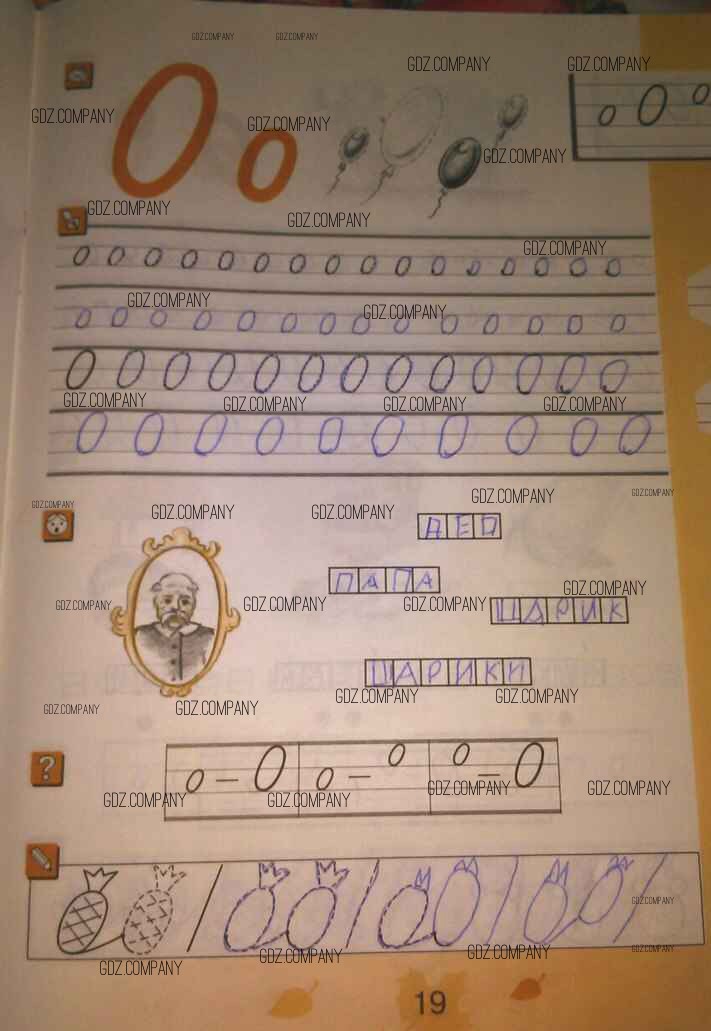 GDZ.COMPANY GDZ.COMPANY
GDZ.COMPANY GDZ.COMPANY
О о
о О о
GDZ.COMPANY GDZ.COMPANY
GDZ.COMPANY
GDZ.COMPANY GDZ.COMPANY
GDZ.COMPANY
о о о о о о о о о о о о о о о о
GDZ.COMPANY GDZ.COMPANY
о о о о о о о о о о о о о о
О О О О О О О О О О О О О
GDZ.COMPANY GDZ.COMPANY GDZ.COMPANY GDZ.COMPANY
О О О О О О О О О О
GDZ.COMPANY GDZ.COMPANY
GDZ.COMPANY GDZ.COMPANY GDZ.COMPANY
ДЕД
ПАПА
GDZ.COMPANY
GDZ.COMPANY GDZ.COMPANY GDZ.COMPANY
ШАРИК
ШАРИКИ
GDZ.COMPANY GDZ.COMPANY
GDZ.COMPANY GDZ.COMPANY
?
о – О о – о о – О
GDZ.COMPANY GDZ.COMPANY GDZ.COMPANY GDZ.COMPANY
GDZ.COMPANY
GDZ.COMPANY GDZ.COMPANY GDZ.COMPANY GDZ.COMPANY
19